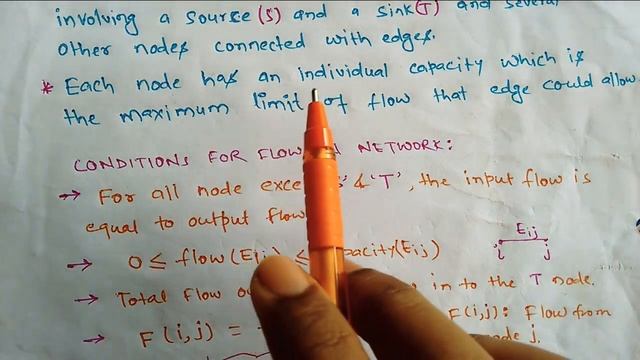 involving a source (S) and a sink(T) and several
other nodes connected with edges.
* Each node has an individual capacity which is
the maximum limit of flow that edge could allow
CONDITIONS FOR FLOW NETWORK:
→ For all node & 'T', the input flow is
equal to output flow
Eij
i j
→ 0 ≤ flow(Eij) ≤ (Eij)
→ Total Flow in to the T node.
→ F(i,j) = -
F(i,j): Flow from
j.